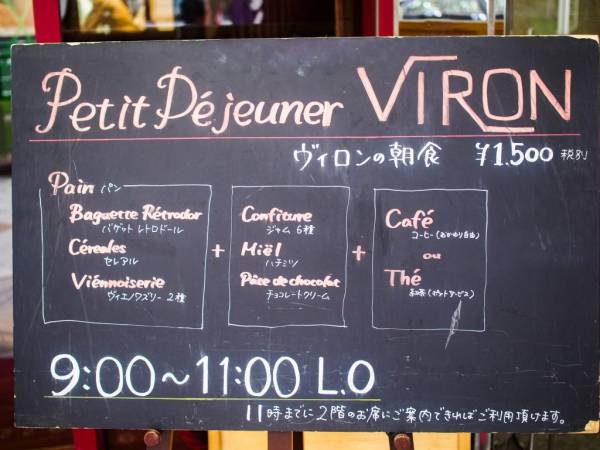 Petit Déjeuner VIRON
ヴィロンの朝食 ¥1,500 税別
Pain パン
Baguette Rétrodor
バゲット レトロドール
Céreales
セレアル
Viénnoiserie
ヴィエノワズリー 2種
+
Confiture
ジャム 6種
Miël
ハチミツ
Pâte de chocolat
チョコレートクリーム
+
Café
コーヒー(おかわり自由)
ou
Thé
紅茶(ポットサービス)
9:00~11:00 L.O
11時までに2階のお席にご案内できればご利用頂けます。